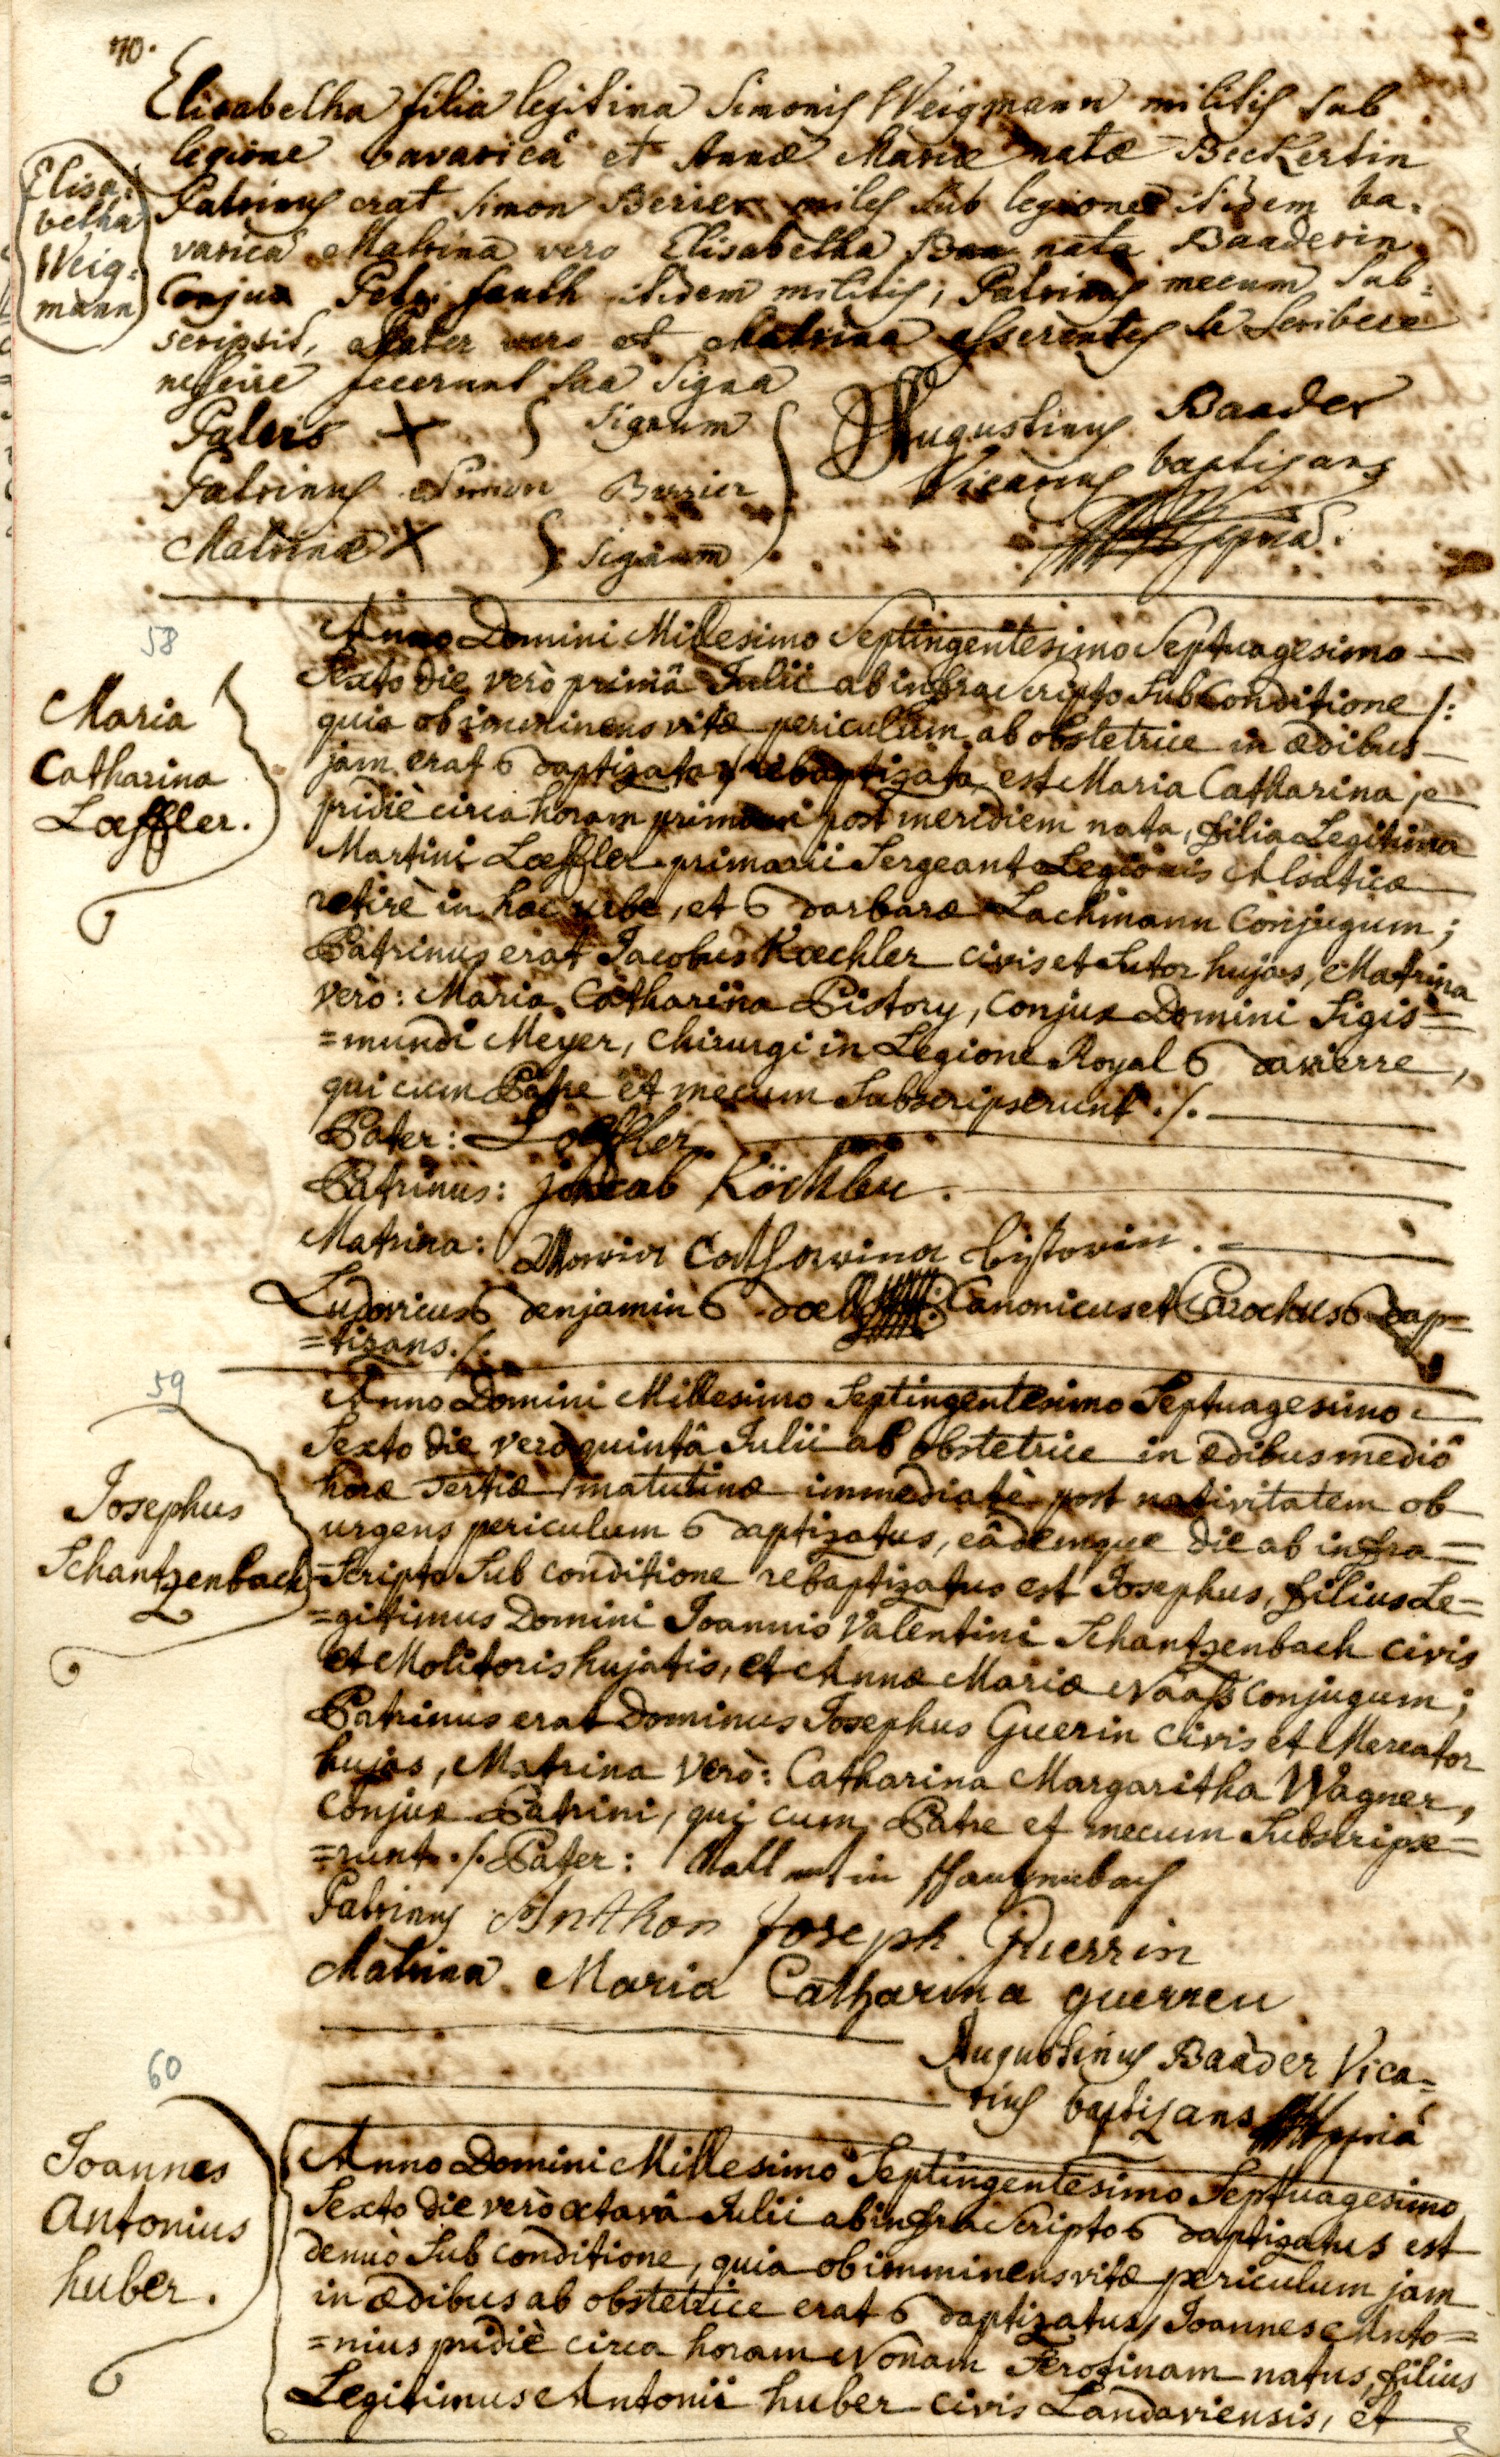 70.
Elisabetha filia legitima Simonis Weigmann militis sub
legione bavaricâ et Annæ Mariæ natæ Beckertin
Elisa=
betha
Weig=
mann
Patrinus erat Simon Berier miles sub legione itidem ba=
varicâ Matrina vero Elisabetha nata Baaderin
Conjux Petri fauth itidem militis; Patrinus mecum sub=
scripsit, Pater vero et Matrina asserentes se scribere
nescire fecerunt sua signa
Patris X } signum
Patrinus Simon Berrier
Matrinæ X } signum
Augustinus Baader
Vicarius baptisans
mpriâ.
58
Maria
Catharina
Lœffler.
Anno Domini Millesimo Septingentesimo Septuagesimo
Sexto die verò primâ Julii ab infra scripto sub conditione /:
quia ob imminens vitæ periculum ab obstetrice in ædibus
jam erat Baptizata :/ rebaptizata est Maria Catharina je
pridiè circa horam primam post meridiem nata, filia Legitima
Martini Lœffler primarii Sergeant Legionis Alsaticæ
retirè in hac urbe, et Barbaræ Lachmann Conjugum;
Patrinus erat Jacobus Kœchler civis et sutor hujas, Matrina
verò: Maria Catharina Pistory, conjux Domini Sigis=
=mundi Meyer, chirurgi in Legione Royal Bavierre,
qui cum Patre et mecum subscripserunt ./.
Pater: Loeffler
Patrinus: jacob Köchler.
Matrina: Maria Catharina Pistorin.
Ludovicus Benjamin Canonicus et Parochus Bap=
=tizans ./.
59
Josephus
Schantzenbach
Anno Domini Millesimo Septingentesimo Septuagesimo
Sexto die verò quintâ Julii ab obstetrice in ædibus mediô
horæ tertiæ matutinæ immediatè post nativitatem ob
urgens periculum Baptizatus, eâdemque die ab infra=
=scripto sub conditione rebaptizatus est Josephus, filius Le=
=gitimus Domini Joannis Valentini Schantzenbach civis
et Molitoris hujatis, et Annæ Mariæ Naass conjugum;
Patrinus erat Dominus Josephus Guerin civis et Mercator
hujas, Matrina verò: Catharina Margaritha Wagner,
conjux Patrini, qui cum Patre et mecum subscripse=
=runt ./. Pater: Vallentin schantzenbach
Patrinus Anthon Joseph Guerrin
Matrina Maria Catharina guerren
Augustinus Baader Vica=
rius baptisans mpriâ
60
Joannes
Antonius
huber.
Anno Domini Millesimo Septingentesimo Septuagesimo
Sexto die verò octavâ Julii ab infra scripto Baptizatus est
denuò sub conditione, quia ob imminens vitæ periculum jam
in ædibus ab obstetrice erat Baptizatus, Joannes Anto=
=nius pridiè circa horam Nonam serotinam natus, filius
Legitimus Antonii huber civis Landaviensis, et